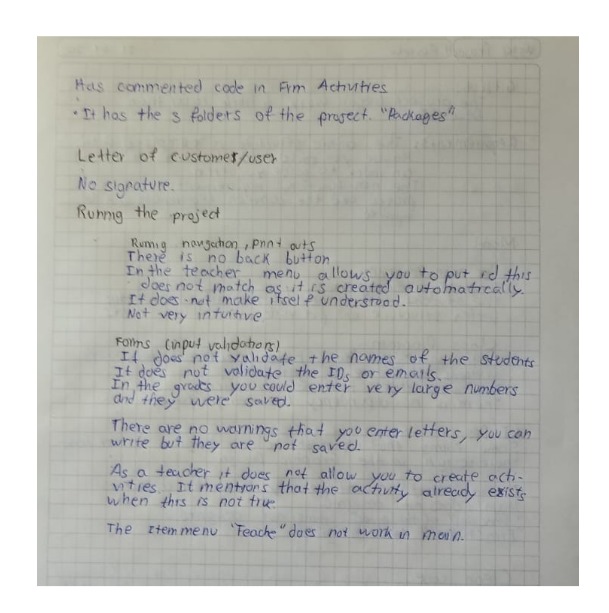 Has commented code in Frm Activities
• It has the 3 folders of the project. "Packages"
Letter of customer/user
No signature.
Runnig the project
Runnig navigation, print outs
There is no back button
In the teacher menu allows you to put id this
does not match as it is created automatically
It does not make itself understood.
Not very intuitive
Forms (input validations)
It does not validate the names of the students
It does not validate the IDs or emails.
In the grades you could enter very large numbers
and they were saved.
There are no warnings that you enter letters, you can
write but they are not saved.
As a teacher it does not allow you to create acti-
vities. It mentions that the activity already exists
when this is not true.
The Item menu "Teache" does not work in main.